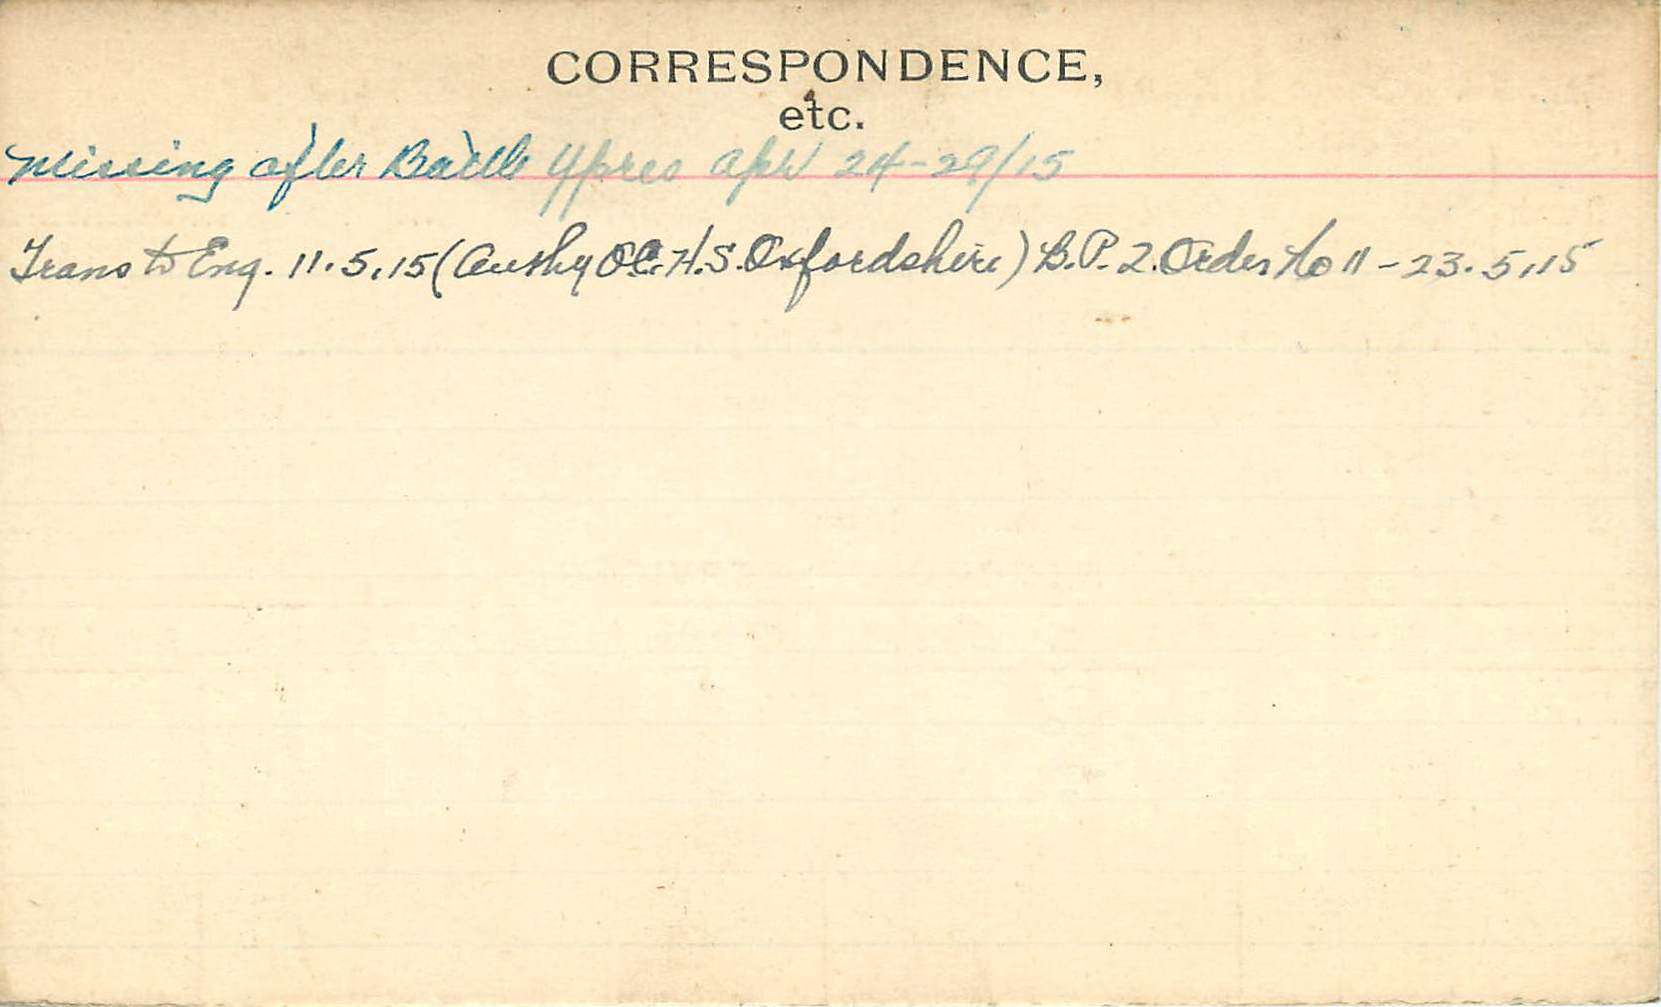 CORRESPONDENCE,
etc.
Missing after Battle Ypres Apr 24-29/15
Trans to Eng. 11.5.15 (Authy O.C. H.S. Oxfordshire) B.P. 2. Order No 11 - 23.5.15